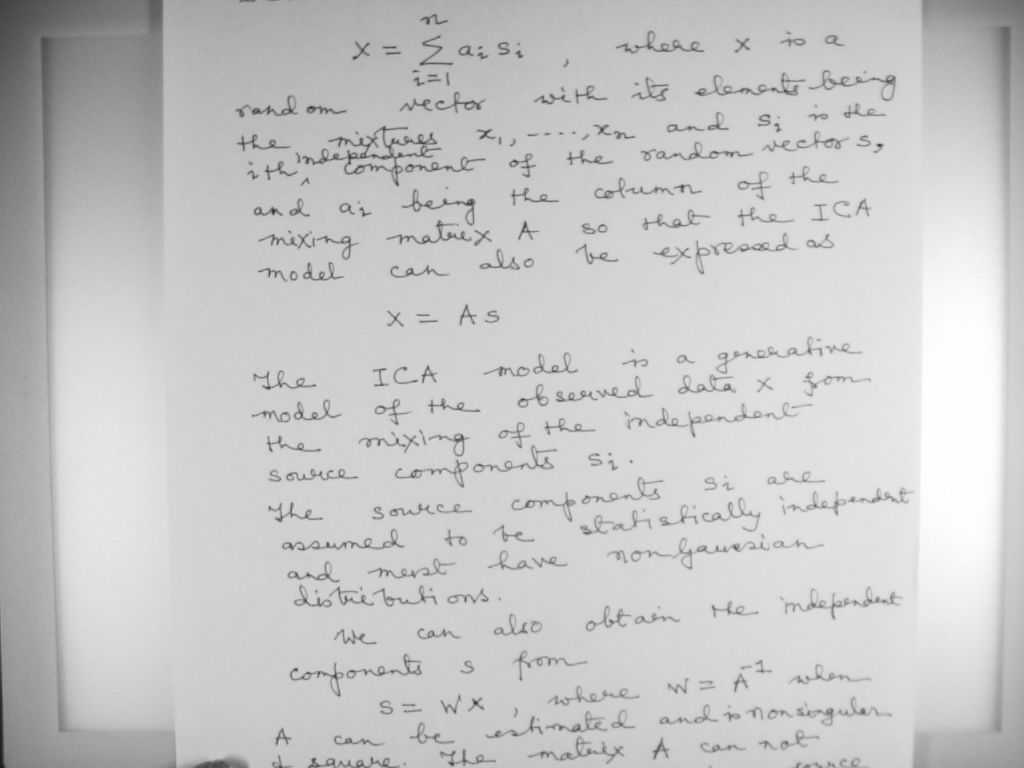 n
x = Σ ai si , where x is a
i=1
random vector with its elements being
the mixtures x1, ----, xn and si is the
independent
ith ^ component of the random vector s,
and ai being the column of the
mixing matrix A so that the ICA
model can also be expressed as
x = As
The ICA model is a generative
model of the observed data x from
the mixing of the independent
source components si.
The source components si are
assumed to be statistically independent
and must have nongaussian
distributions.
We can also obtain the independent
components s from
s = Wx , where W = A^-1 when
A can be estimated and is nonsingular
& square. The matrix A can not
source